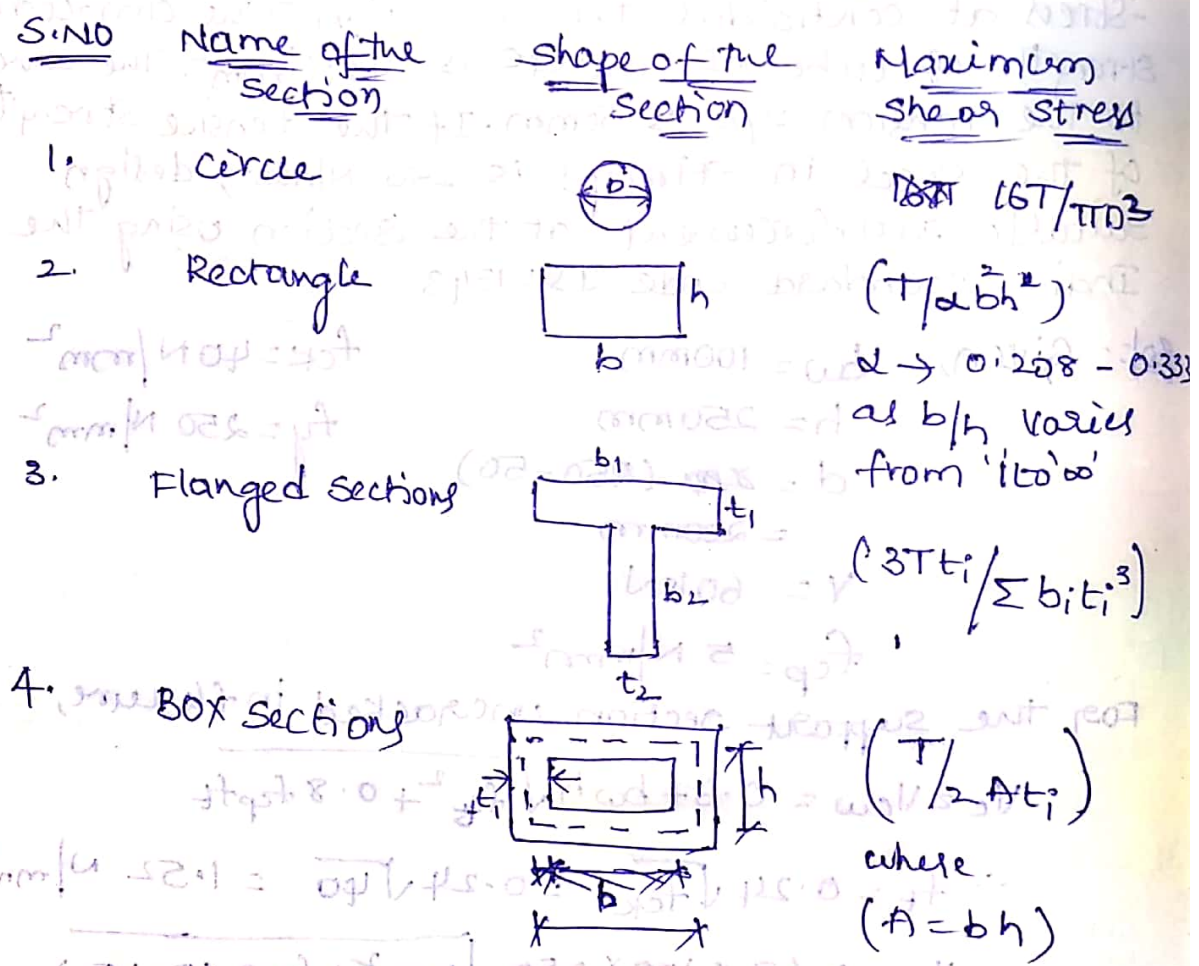 S.NO Name of the Section Shape of the Section Maximum Shear Stress
1. circle D 16T/πD³
2. Rectangle h b (T/αb²h)
α → 0.208 - 0.333
as b/h varies
from '1 to ∞'
3. Flanged sections b₁ t₁ b₂ t₂ (3Ttᵢ/Σbᵢtᵢ³)
4. Box Sections tᵢ h b (T/2Atᵢ)
where.
(A=bh)